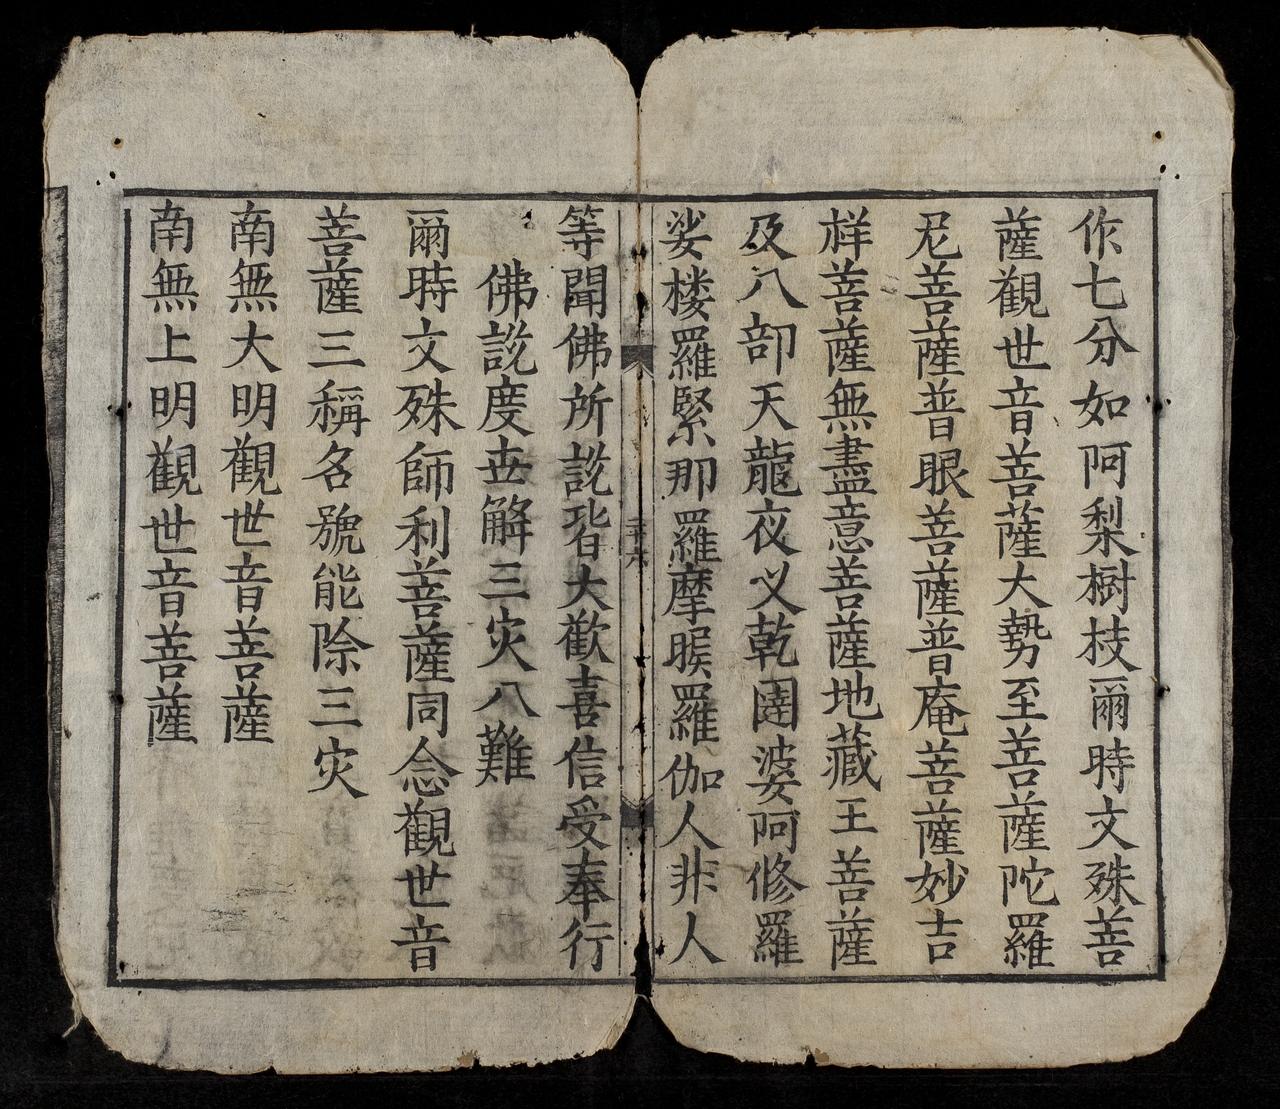 作七分如阿梨樹枝爾時文殊菩
薩觀世音菩薩大勢至菩薩陀羅
尼菩薩普眼菩薩普庵菩薩妙吉
样菩薩無盡意菩薩地藏王菩薩
及八部天龍夜义乾闥婆阿修羅
娑楼羅緊那羅摩睺羅伽人非人
二十六
等聞佛所説皆大歡喜信受奉行
佛説度世解三灾八難
爾時文殊師利菩薩同念觀世音
菩薩三稱名號能除三灾
南無大明觀世音菩薩
南無上明觀世音菩薩